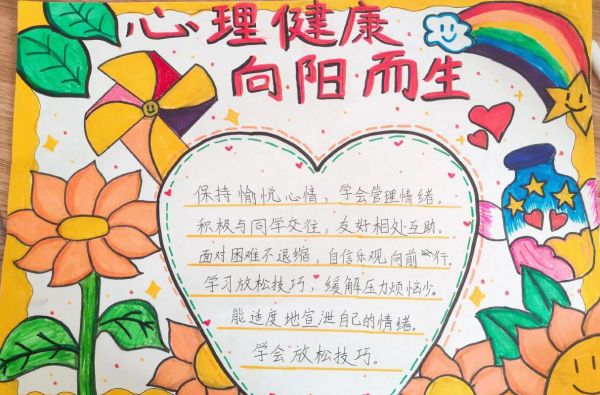 心理健康
向阳而生
保持愉悦心情，学会管理情绪。
积极与同学交往，友好相处互助。
面对困难不退缩，自信乐观向前行。
学习放松技巧，缓解压力烦恼少。
能适度地宣泄自己的情绪。
学会放松技巧。